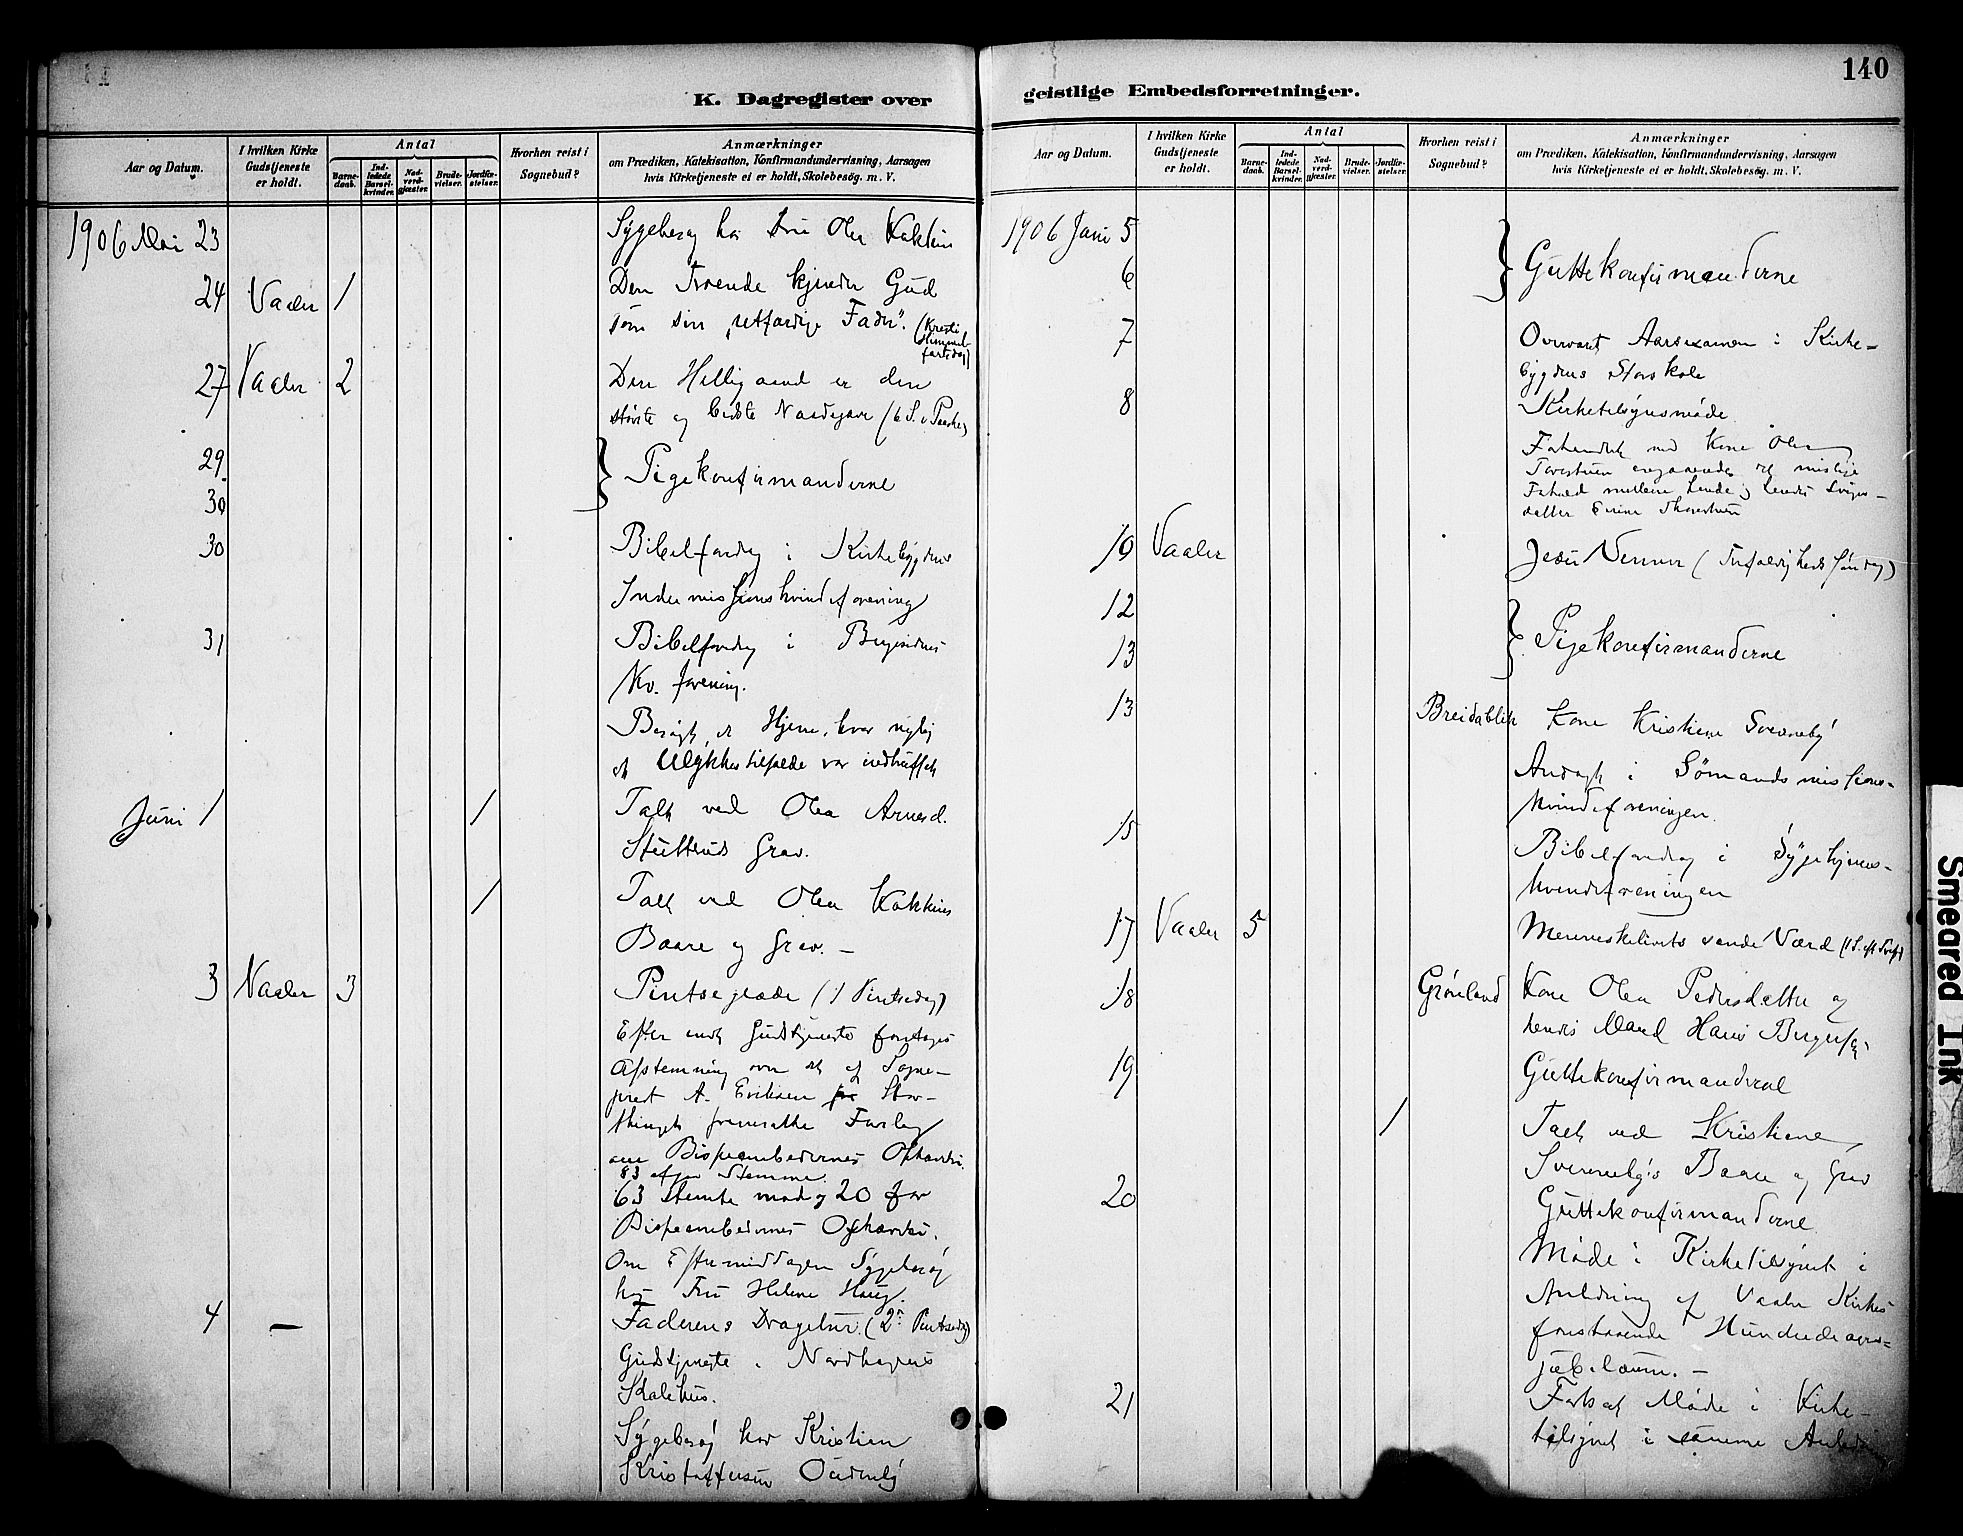 140
K. Dagregister over geistlige Embedsforretninger.
Aar og Datum.
I hvilken Kirke Gudstjeneste er holdt.
Antal
Barnedaab.
Indledede Barselkvinder.
Nadverdgjæster.
Brudevielser.
Jordfæstelser.
Hvorhen reist i Sognebud?
Anmærkninger
om Prædiken, Katekisation, Konfirmandundervisning, Aarsagen
hvis Kirketjeneste ei er holdt, Skolebesøg. m. V.
1906 Mai 23 Sygebesøg hos Fru Olea
24 Vaaler 1 Den Troende kjender Gud
som sin "retfærdige Fader". (Kristi
Himmel-
fartsdag)
27 Vaaler 2 Den Hellig aand er den
største og bedste Naadegave (6 S. e Paaske)
29
30 } Pigekonfirmanderne
30 Bibelforedrag i Kirkebygdens
Indremissionskvindeforening
31 Bibelforedrag i
Kv. forening.
Besøgt et Hjem, hvor nylig
et Ulykkestilfælde var indtruffet
Juni 1 / Talt ved Olea Arnesd.
Grav.
/ Talt ved Olea
Baare og Grav. —
3 Vaaler 3 Pintseglæde (1 Pintsedag)
Efter endt Gudstjeneste foretoges
Afstemning over det af Sogne-
prest A. Eriksen for Stor-
thinget fremsatte Forslag
om Bispeembedernes Ophævelse.
83 afgav Stemme.
63 stemte mod og 20 for
Bispeembedernes Ophævelse.
Om Eftermiddagen Sygebesøg
hos Fru Helene Haug.
4 — Faderens Dragelse (2den Pintsedag)
Gudstjeneste i
Skolehus.
Sygebesøg hos Kristian
Kristoffersen
Aar og Datum.
I hvilken Kirke Gudstjeneste er holdt.
Antal
Barnedaab.
Indledede Barselkvinder.
Nadverdgjæster.
Brudevielser.
Jordfæstelser.
Hvorhen reist i Sognebud?
Anmærkninger
om Prædiken, Katekisation, Konfirmandundervisning, Aarsagen
hvis Kirketjeneste ei er holdt, Skolebesøg. m. V.
1906 Juni 5
6 } Guttekonfirmanderne
7 Overvært Aarsexamen i Kirke-
bygdens Storskole
8 Kirketilsynsmøde
Forhandlet med Kone Olea
angaaende et mislige
Forhold mellem hende og hendes Sviger-
datter
10 Vaaler Jesu Venner (Trefoldigheds Søndag)
12
13 } Pigekonfirmanderne
13 Breidablik Kone Kristiane Svenneby
Andagt i Sømandsmissions-
kvindeforeningen.
15 Bibelforedrag i Sygehjems-
kvindeforeningen
17 Vaaler 5 Menneskelivets sande Værd (1 S. eft Trefold)
18 Grønland Kone Olea Pedersdatter og
hendes Mand Hans
19 Guttekonfirmanderne
/ Talt ved Kristiane
Svennebys Baare og Grav
20 Guttekonfirmanderne
Møde i Kirketilsynet i
Anledning af Vaaler Kirkes
forestaaende Hundredeaars-
jubelæum. —
21 Fortsat Møde i Kirke-
tilsynet i samme Anledning
Smeared Ink